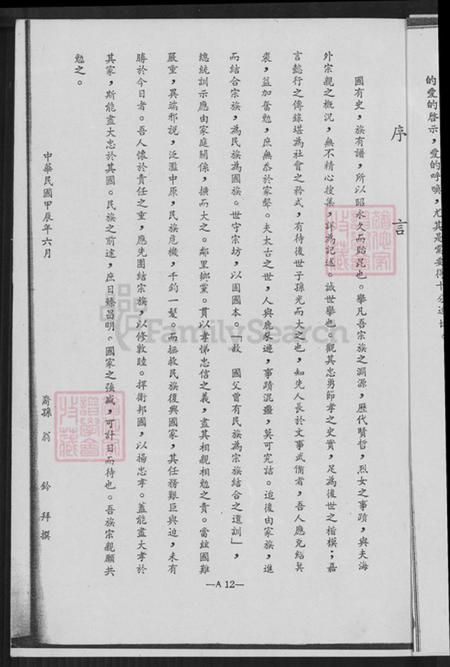 的愛的啓示，愛的呼喚，尤其是需要得十分迫切。
序言
國有史，族有譜，所以昭永久而貽昆也。舉凡吾宗族之淵源，歷代賢哲，烈女之事蹟，與夫海
外宗親之概況，無不精心搜集，詳為記述。誠世舉也。觀其忠勇節孝之史實，足為後世之楷模；嘉
言懿行之傳錄堪為社會之矜式，有待後世子孫光而大之也，如先人長於文事武備者，吾人應克紹箕
裘，益加奮勉，庶無忝於家聲。夫太古之世，人與鹿豕遊，事蹟混藎，莫可究詰。迨後由家族，進
而結合宗族，為民族為國族。世守宗坊，以固國本。「故　國父曾有民族為宗族結合之遺訓」，
總統訓示應由家庭關係，擴而大之。鄰里鄉黨。貫以孝悌忠信之義，盡其相親相勉之責。當玆國難
嚴重，異端邪說，泛濫中原，民族危機，千鈞一髮。而拯救民族復興國家，其任務艱巨與迫，未有
勝於今日者。吾人懍於責任之重，應先團結宗族，以修敦睦。捍衛邦國，以揚忠孝。蓋能盡大孝於
其家，斯能盡大忠於其國。民族之前途，庶日臻昌明。國家之強盛，可計日而待也。吾族宗親願共
勉之。
中華民國甲辰年六月
裔孫翁　鈐拜撰
—A 12—
FamilySearch